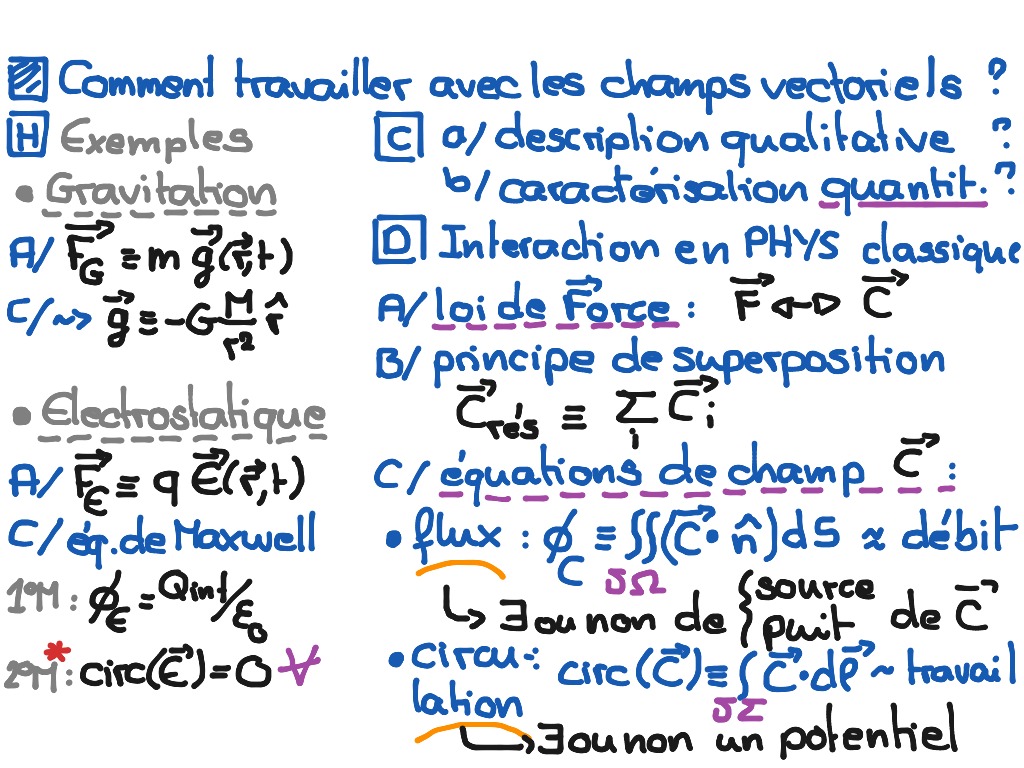 Comment travailler avec les champs vectoriels ?
H Exemples
• Gravitation
A/ F⃗_G ≡ m g⃗(r⃗,t)
C/ ~> g⃗ ≡ -G M/r² r̂
• Electrostatique
A/ F⃗_E ≡ q E⃗(r⃗,t)
C/ éq. de Maxwell
1°M : ϕ_E = Qint/ε₀
2°M* : circ(E⃗) = 0 ∀
C a/ description qualitative ?
b/ caractérisation quantit. ?
D Interaction en PHYS classique
A/ loi de Force : F⃗ ↔ C⃗
B/ principe de superposition
C⃗_rés ≡ Σ_i C⃗_i
C/ équations de champ C⃗ :
• flux : ϕ_C ≡ ∬(C⃗ • n̂)dS ≈ débit
δΩ
↳ ∃ ou non de { source puit de C⃗
• circu- : circ(C⃗) ≡ ∫ C⃗ • dℓ ~ travail
lation δΣ
↳ ∃ ou non un potentiel